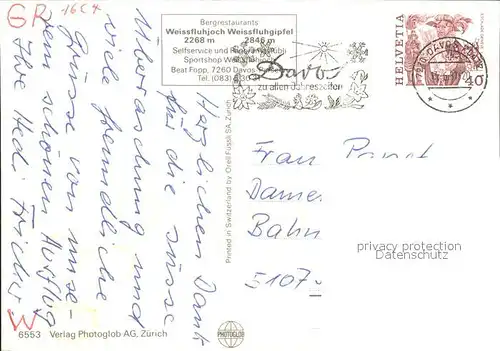 GR
Bergrestaurants
Weissfluhjoch Weissfluhgipfel
2268 m 2846 m
Selfservice und
Sportshop
Beat Fopp, 7260 Davos
Tel. (083)
Davos
zu allen Jahreszeiten
HELVETIA
Herzlichen Dank
für die süsse
Überraschung und
viele freundliche
Grüsse von unse-
rem schönen Ausflug
Ihre Hedi
W
Printed in Switzerland by Orell Füssli SA, Zürich
Frau
Dame
Bahn
5107
privacy protection
Datenschutz
6553 Verlag Photoglob AG, Zürich
PHOTOGLOB